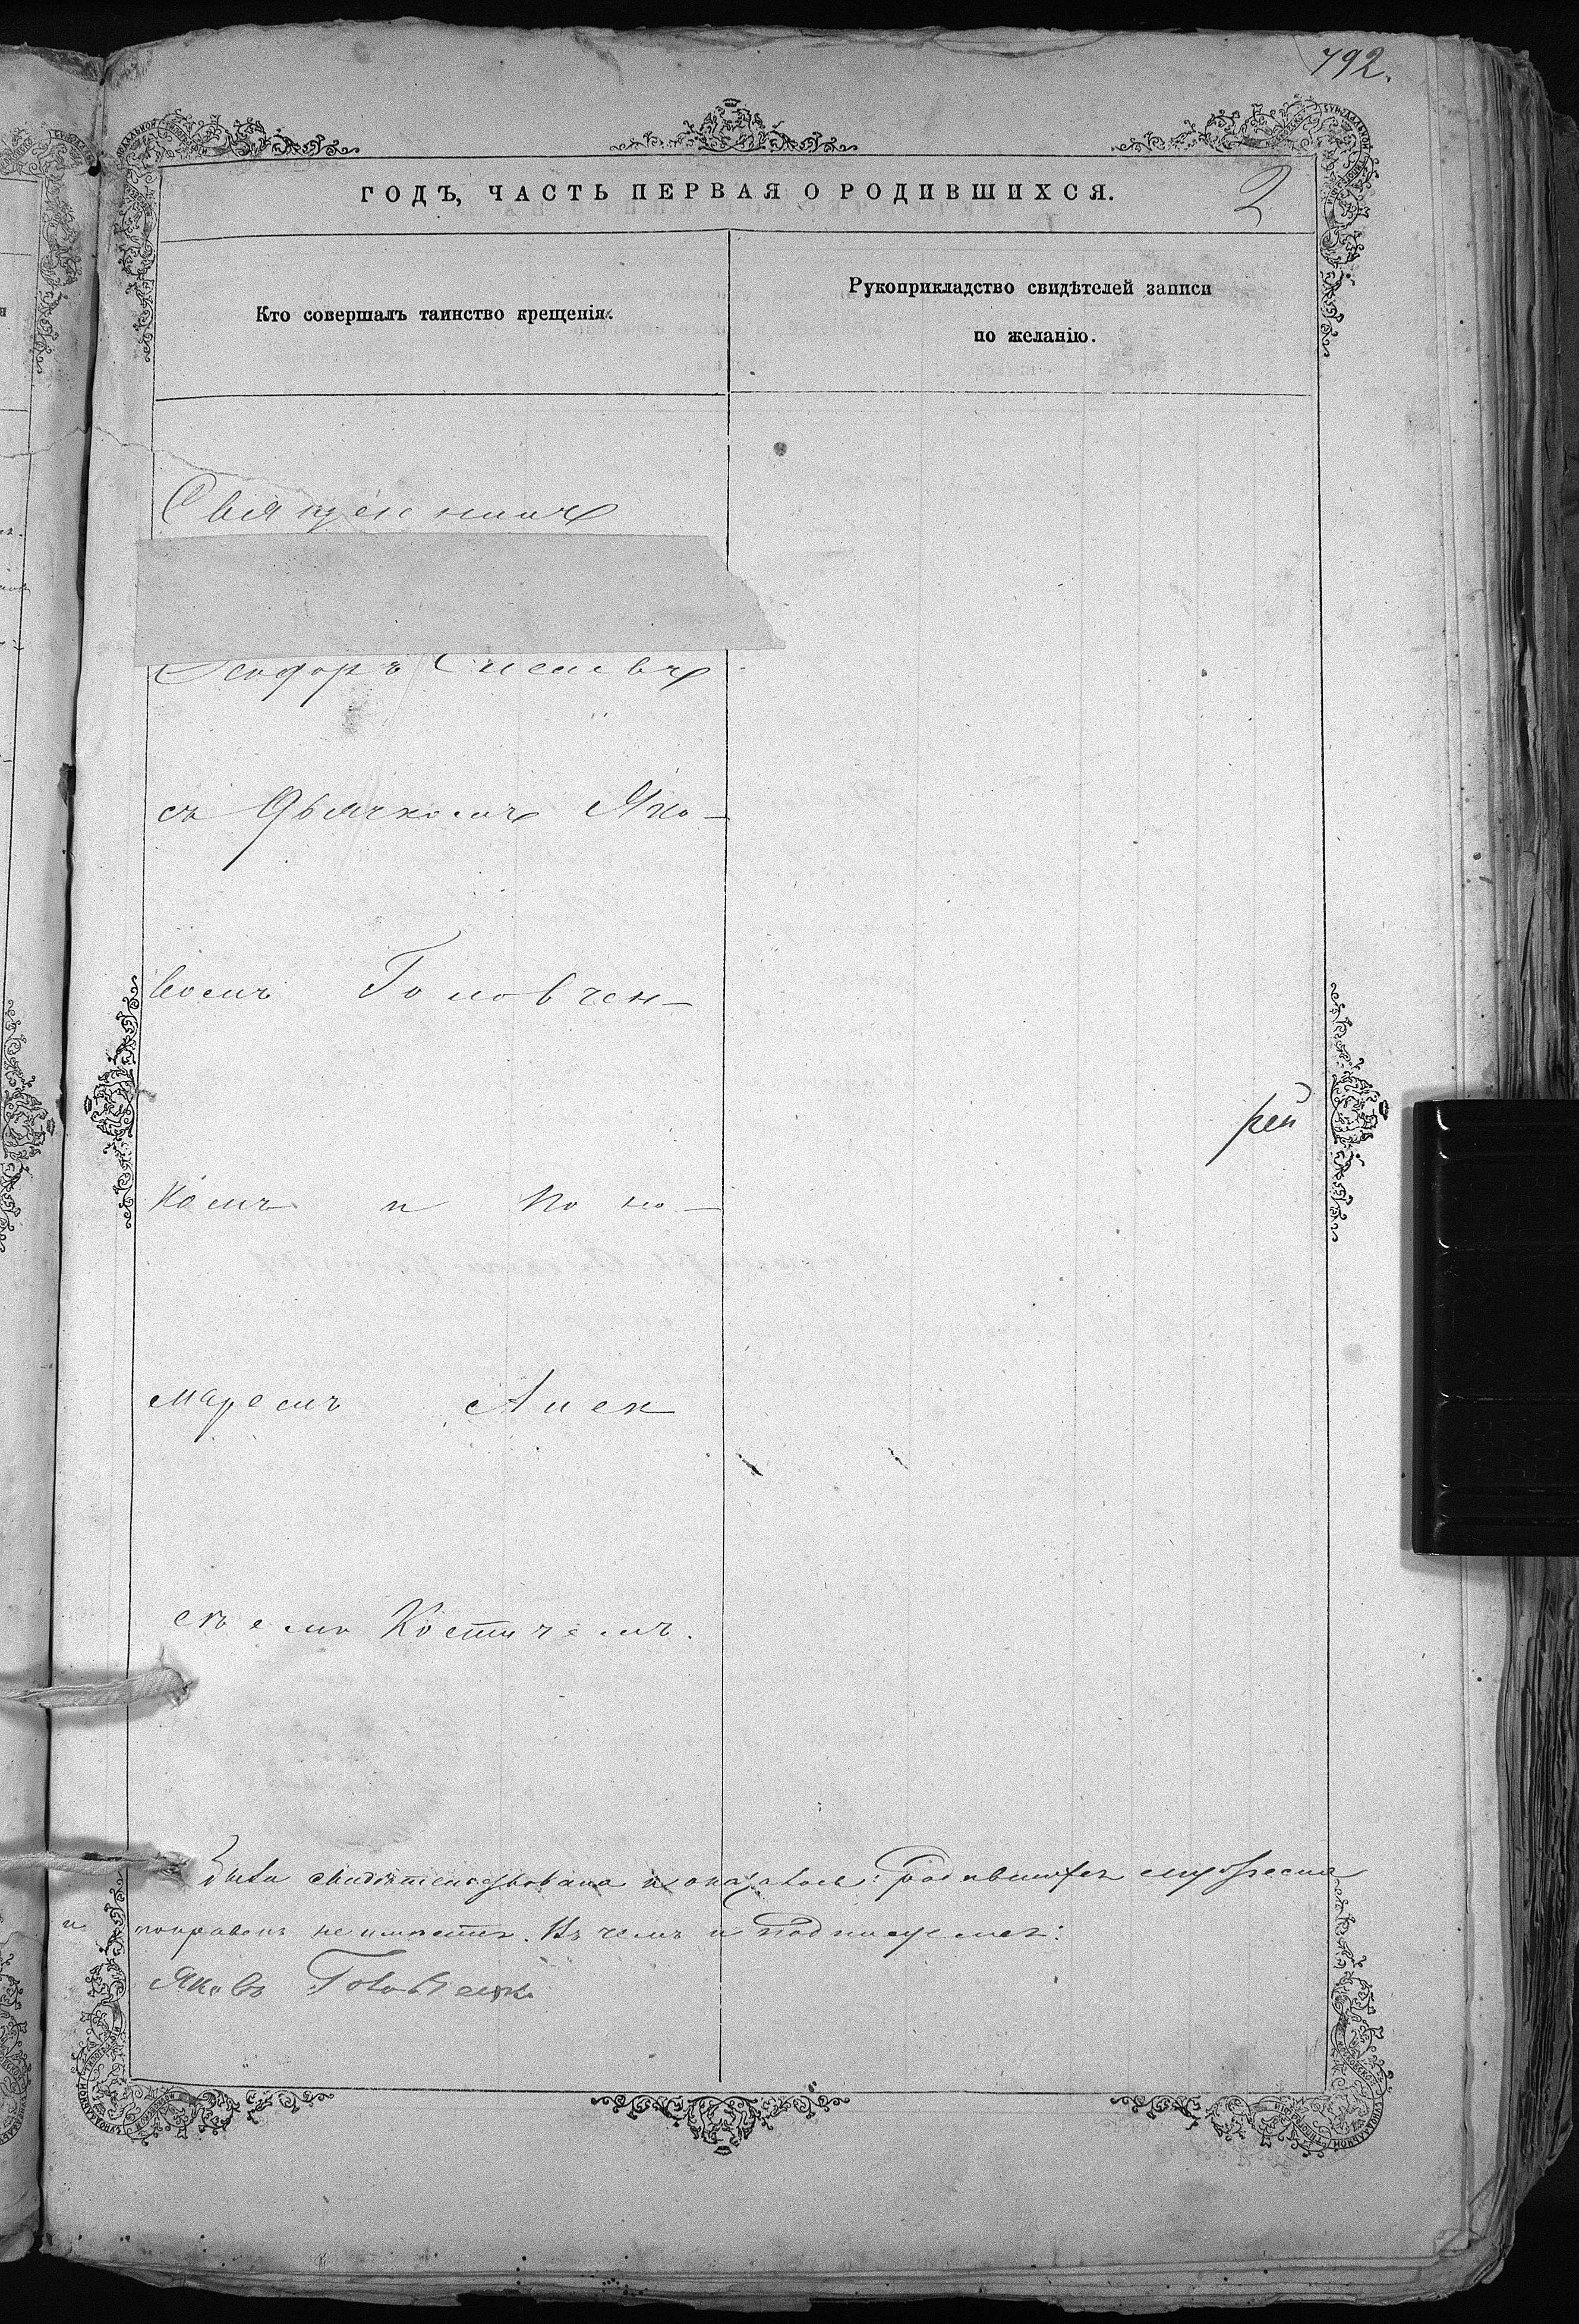 792.
ГОДЪ, ЧАСТЬ ПЕРВАЯ О РОДИВШИХСЯ. 2
Кто совершалъ таинство крещенія.
Рукоприкладство свидѣтелей записи
по желанію.
Священникъ
Ѳеодоръ
съ Дьячкомъ Яко-
вомъ Головчен-
рей
комъ и Поно-
маремъ Алек
сѣемъ Костичемъ.
была свидѣтельствована и оказалось: родившихся
и поправокъ не имѣется. Въ чемъ и подписуемся:
Яковъ Головченко